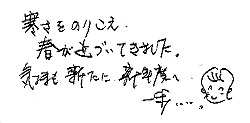 寒さをのりこえ.
春が近づいてきました。
気持も新たに 新年度へ
一歩.....